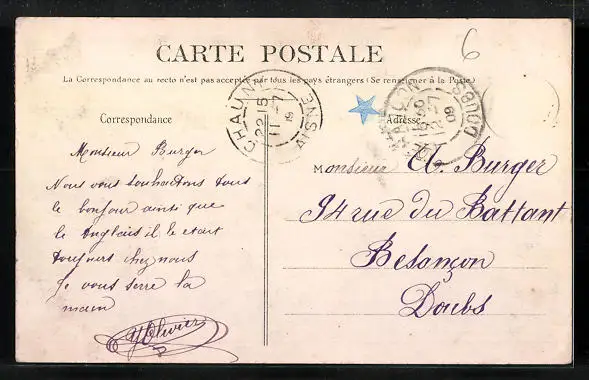 CARTE POSTALE
La Correspondance au recto n'est pas acceptée par tous les pays étrangers (Se renseigner à la Poste)
6
CHAUNY
22 15
11 -7
AISNE
DOUBS
Correspondance
Adresse
Monsieur Burger
Nous vous souhaitons tous
le bonjour ainsi que
le Anglais il le etait
toujours chez nous
Je vous serre la
main
Olivier
Monsieur A. Burger
94 rue du Battant
Besançon
Doubs